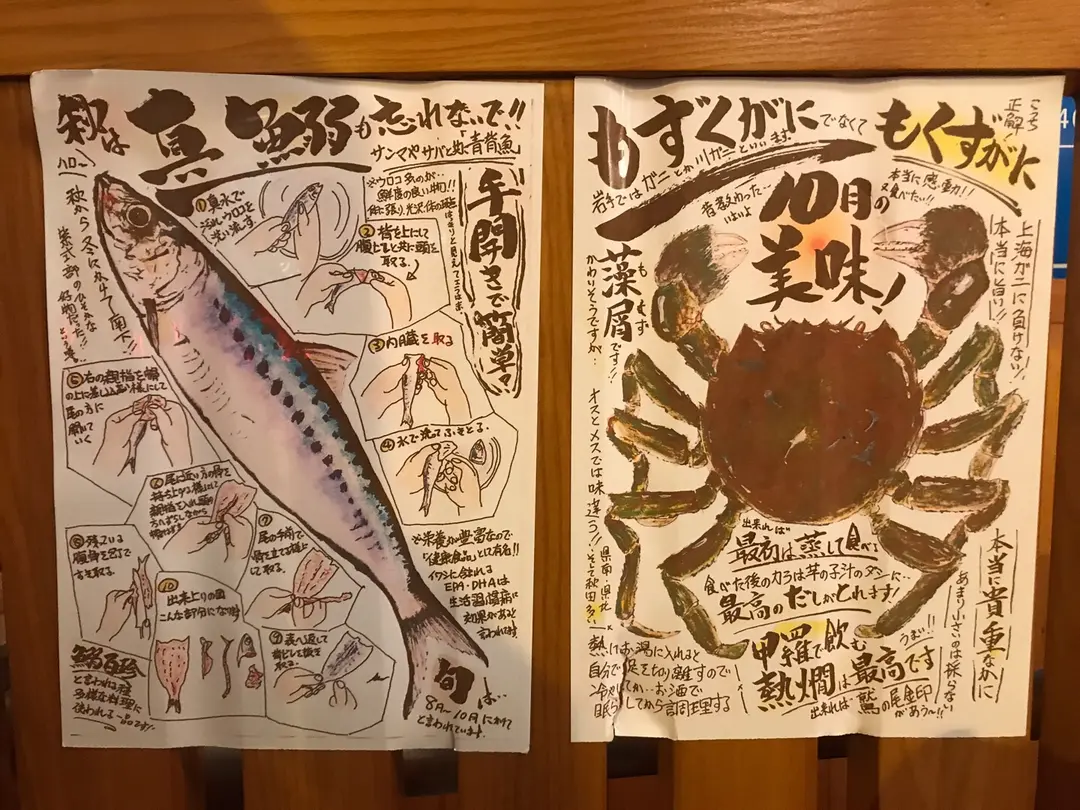 秋は真鰯も忘れないで!!
サンマやサバと共に「青背魚」
ハロー
秋から冬にかけて南下!!
紫式部の
手開きで簡単♪
①真水で
汚れやウロコを
洗い流す
※ウロコ多のが…
鮮度の良い物!!
②背を上にして
腹上
と共に頭を
取る。
③内臓を取る
④水で洗ってふきとる。
⑤右の親指を
の上に差し込む
様にして
尾の方に
開いて
いく
⑥尾に近い方の骨を
持ち上げる様にして
親指を入れ頭の
方へずらしながら
⑦尾の手前で
骨を立てる様に
して取る。
⑧残っている
腹骨を包丁で
すき取る。
⑨裏へ返して
取る。
⑩出来上りの図
こんな部分になります
※栄養分が豊富なので
「健康食品」として有名!!
イワシに含まれる
EPA・DHAは
生活習慣病に
効果があると
言われてます
鰯百珍
と言われる程
多様な料理に
使われる一品です!
旬は…
8月~10月にかけて
と言われています。
もずくがに
でなくて
もくずがに
こっち
正解!
岩手ではガニとか川ガニといいます
昔数匹った…
はいよ
本当に感動!!
食べたい!!
10月の
美味!
上海ガニに負けない!
本当に旨い!!
藻屑です!!
もくず
かわいそうですが…
オスとメスでは味違う!!
そして秋田多い
県南・県北
出来れば
最初は蒸して食べる
食べた後のカラは芋の子汁のダシに…
最高のだしがとれます!
うまい!!
甲羅で飲む
熱燗は最高です
出来れば
鷲の尾金印
があう~!!
熱いお湯に入れると
自分で足を切り離すので
冷やしてか…お酒で
眠らしてから調理する
本当に貴重なかに
あまり小さいのは採らない